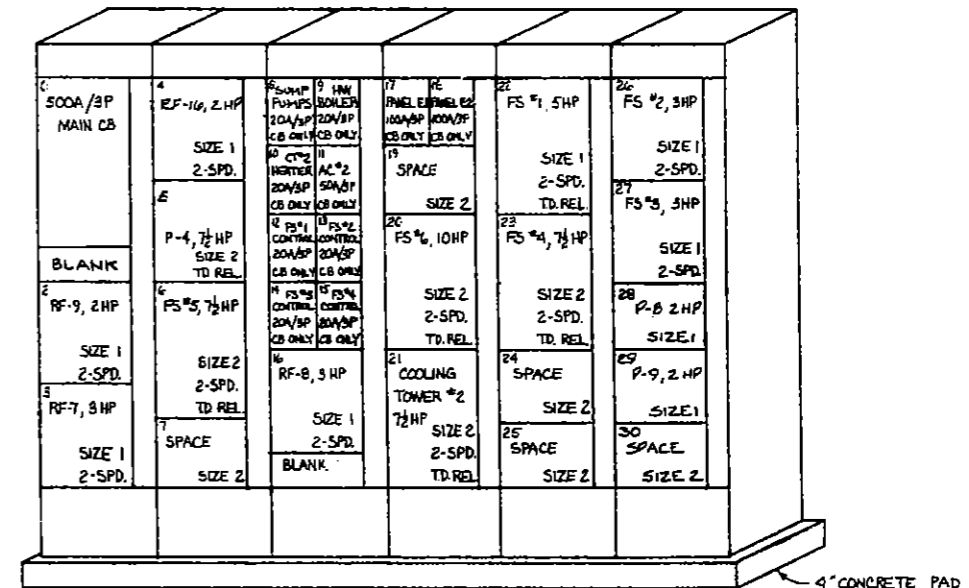 1
500A/3P
MAIN CB
BLANK
2
RF-9, 2HP
SIZE 1
2-SPD.
3
RF-7, 3HP
SIZE 1
2-SPD.
4
RF-16, 2HP
SIZE 1
2-SPD.
5
P-4, 7½HP
SIZE 2
TD REL.
6
FS#5, 7½HP
SIZE 2
2-SPD.
TD REL.
7
SPACE
SIZE 2
8
SUMP
PUMPS
20A/3P
CB ONLY
9
HW
BOILER
20A/3P
CB ONLY
10
CT#2
HEATER
20A/3P
CB ONLY
11
AC#2
50A/3P
CB ONLY
12
FS#1
CONTROL
20A/3P
CB ONLY
13
FS#2
CONTROL
20A/3P
CB ONLY
14
FS#3
CONTROL
20A/3P
CB ONLY
15
FS#4
CONTROL
20A/3P
CB ONLY
16
RF-8, 3HP
SIZE 1
2-SPD.
BLANK
17
PANEL
100A/3P
CB ONLY
18
PANEL E2
100A/3P
CB ONLY
19
SPACE
SIZE 2
20
FS#6, 10HP
SIZE 2
2-SPD.
TD. REL.
21
COOLING
TOWER #2
7½HP
SIZE 2
2-SPD.
T.D. REL
22
FS #1, 5HP
SIZE 1
2-SPD.
TD. REL.
23
FS #4, 7½HP
SIZE 2
2-SPD.
TD. REL.
24
SPACE
SIZE 2
25
SPACE
SIZE 2
26
FS #2, 3HP
SIZE 1
2-SPD.
27
FS#3, 3HP
SIZE 1
2-SPD.
28
P-8 2HP
SIZE 1
29
P-9, 2HP
SIZE 1
30
SPACE
SIZE 2
4" CONCRETE PAD